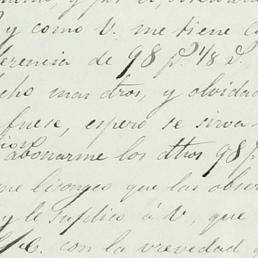 y como V. me tiene
98 p.s 4/8 r.
cho mas dtos, y olvidad
fuese, espero se sirva
abonarme los dthos 98 p
me lisongeo que las obser
y le suplico á V, que
con la brevedad